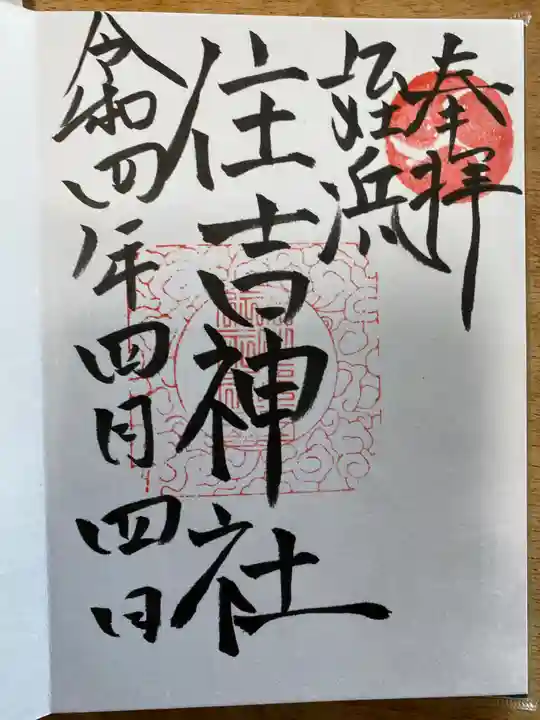 奉拝
姪浜
住吉神社
令和四年四月四日